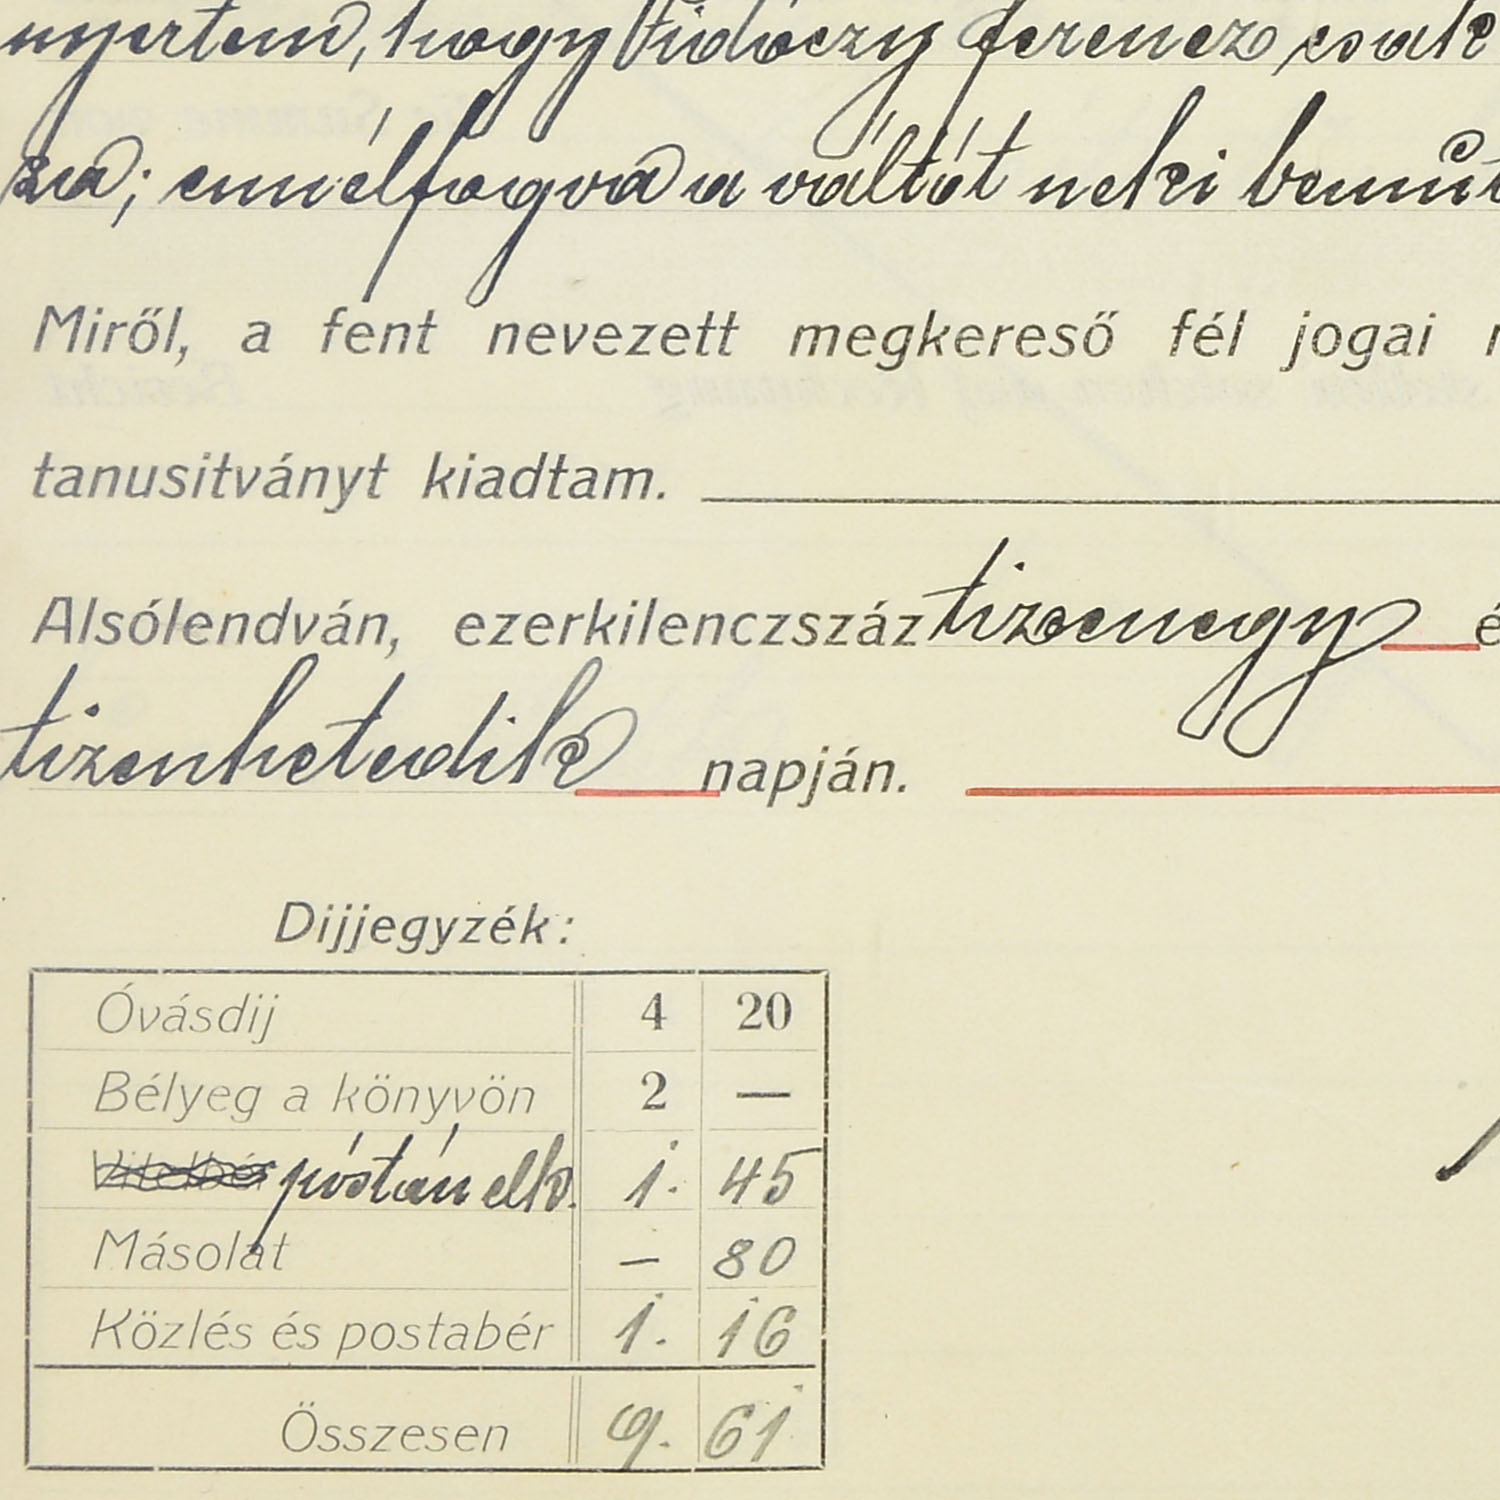 nyertem, hogy Vidóczy Ferencz csak
za; ennélfogva a váltót neki bemut
Miről, a fent nevezett megkereső fél jogai
tanusitványt kiadtam.
Alsólendván, ezerkilenczszáz tizenegy é
tizenhetedik napján.
Dijjegyzék:
Óvásdij 4 20
Bélyeg a könyvön 2 —
Vitelbér postán elk. 1. 45
Másolat — 80
Közlés és postabér 1. 16
Összesen 9. 61